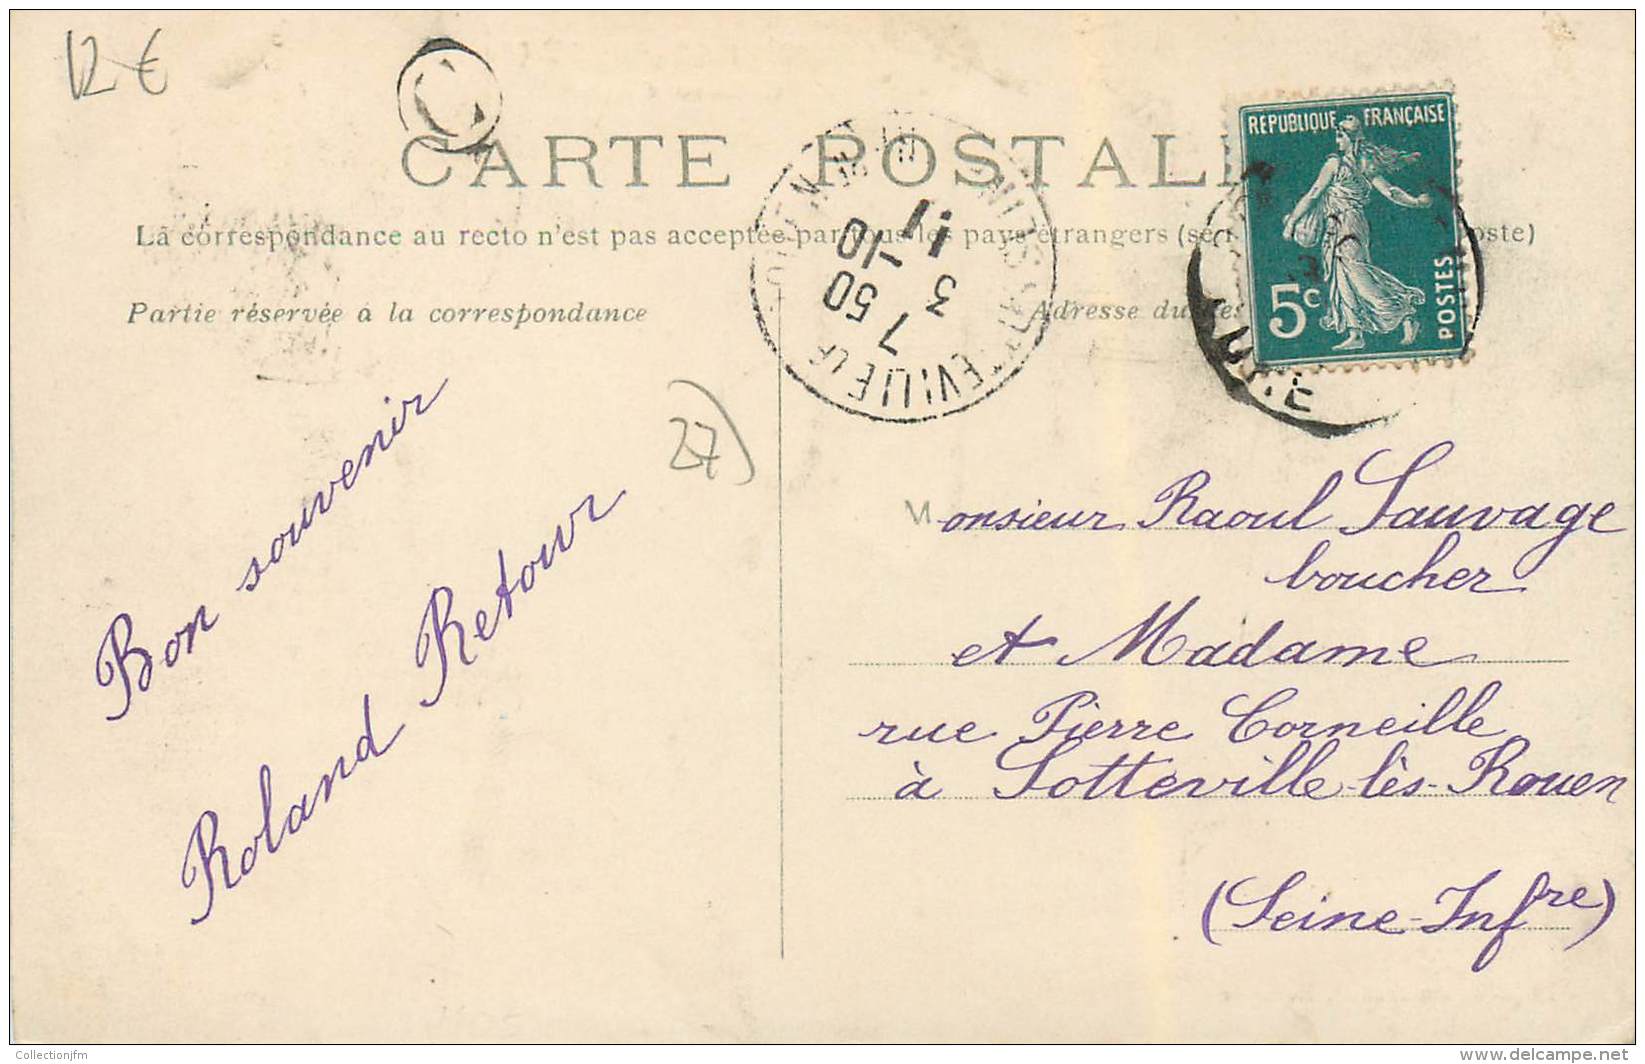 12 €
CARTE POSTAL
La correspondance au recto n'est pas acceptée par tous les pays étrangers (se
oste)
Partie réservée à la correspondance
Adresse du
REPUBLIQUE FRANÇAISE
5c
POSTES
7 50
3 -10
11
EVILLE
27)
Bon souvenir
Roland Retour
Monsieur Raoul Sauvage
boucher
et Madame
rue Pierre Corneille
à Sotteville-lès-Rouen
(Seine-Infre)
Collectionjfm
www.delcampe.net